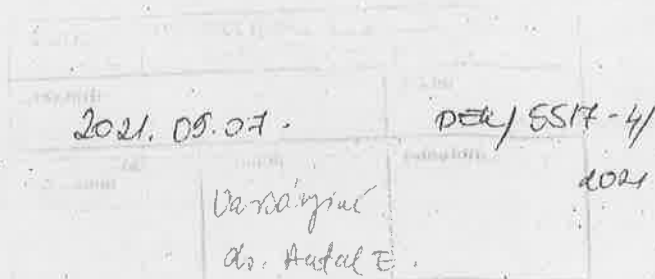 2021. 09. 07. DEK/5517-4/
2021
Varsányiné
dr. Antal E.